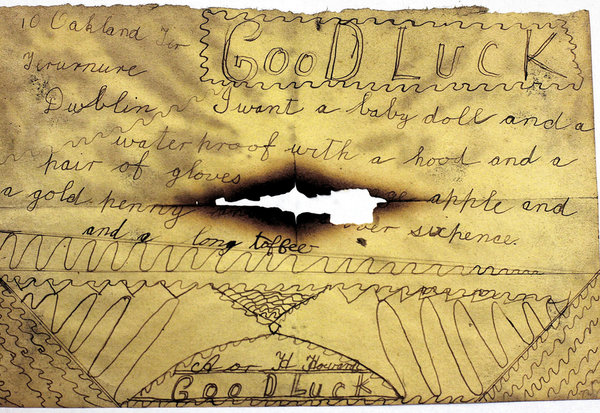 10 Oakland Ter
GOOD LUCK
Terurnure
Dublin I want a baby doll and a
waterproof with a hood and a
pair of gloves apple and
a gold penny sixpence.
and a long toffee
A or H Howard
GOOD LUCK